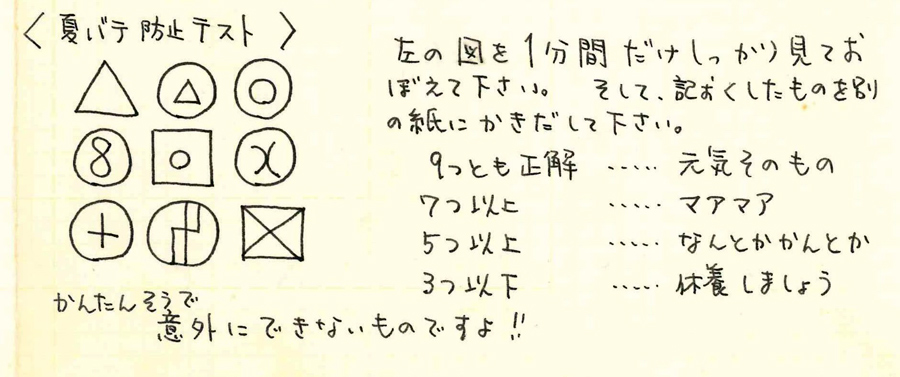 〈 夏バテ防止テスト 〉
8
x
左の図を1分間だけしっかり見てお
ぼえて下さい。 そして、記おくしたものを別
の紙にかきだして下さい。
9つとも正解 ‥‥‥ 元気そのもの
7つ以上 ‥‥‥ マアマア
5つ以上 ‥‥‥ なんとかかんとか
3つ以下 ‥‥‥ 休養しましょう
かんたんそうで
意外にできないものですよ!!